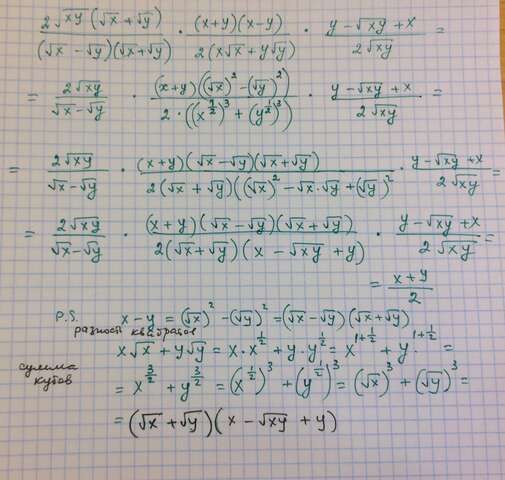 2√xy (√x + √y) / (√x - √y)(√x + √y) · (x+y)(x-y) / 2(x√x + y√y) · y - √xy + x / 2√xy =
= 2√xy / √x - √y · (x+y)((√x)² - (√y)²) / 2·((x^½)³ + (y^½)³) · y - √xy + x / 2√xy =
= 2√xy / √x - √y · (x+y)(√x - √y)(√x + √y) / 2(√x + √y)((√x)² - √x·√y + (√y)² · y - √xy + x / 2√xy =
= 2√xy / √x - √y · (x+y)(√x - √y)(√x + √y) / 2(√x + √y)(x - √xy + y) · y - √xy + x / 2√xy =
= x+y / 2
P.S. x - y = (√x)² - (√y)² = (√x - √y)(√x + √y)
разность квадратов
x√x + y√y = x·x^½ + y·y^½ = x^(1+½) + y^(1+½) =
сумма
кубов
= x^(3/2) + y^(3/2) = (x^½)³ + (y^½)³ = (√x)³ + (√y)³ =
= (√x + √y)(x - √xy + y)